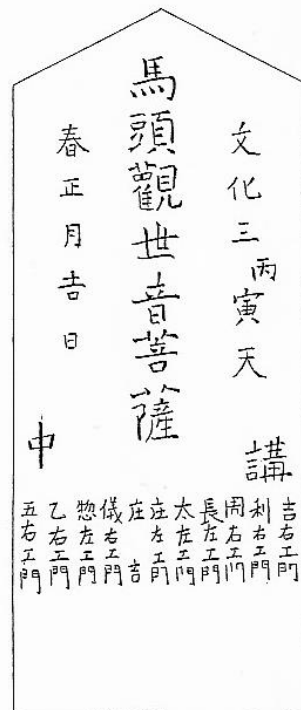 文化三丙寅天
馬頭觀世音菩薩
春正月吉日
講
中
吉右エ門
利右エ門
周右エ門
長左エ門
太左エ門
庄左エ門
庄吉
儀右エ門
惣左エ門
乙右エ門
五右エ門